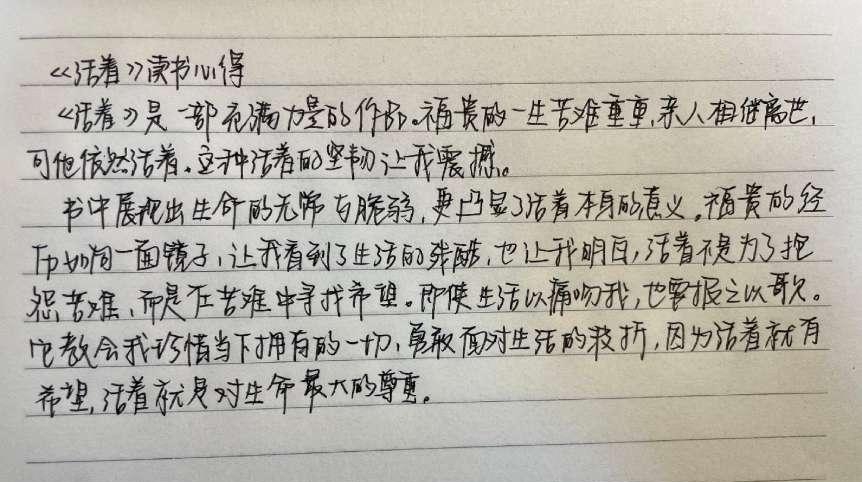 《活着》读书心得
《活着》是一部充满力量的作品。福贵的一生苦难重重,亲人相继离世,
可他依然活着。这种活着的坚韧让我震撼。
书中展现出生命的无常与脆弱,更凸显了活着本身的意义。福贵的经
历如同一面镜子,让我看到了生活的残酷,也让我明白,活着不是为了抱
怨苦难,而是在苦难中寻找希望。即使生活以痛吻我,也要报之以歌。
它教会我珍惜当下拥有的一切,勇敢面对生活的挫折,因为活着就有
希望,活着就是对生命最大的尊重。